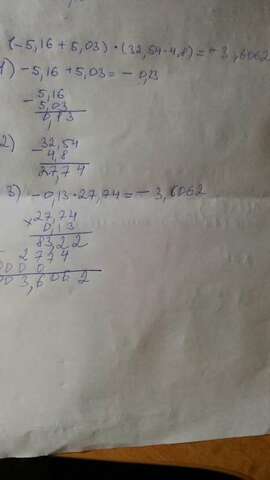 (-5,16 + 5,03) · (32,54-4,8) = - 3,6062
1) -5,16 + 5,03 = - 0,13
- 5,16
5,03
0,13
2) - 32,54
4,8
27,74
3) -0,13 · 27,74 = - 3,6062
x 27,74
0,13
83,22
2774
000 0
003,6062